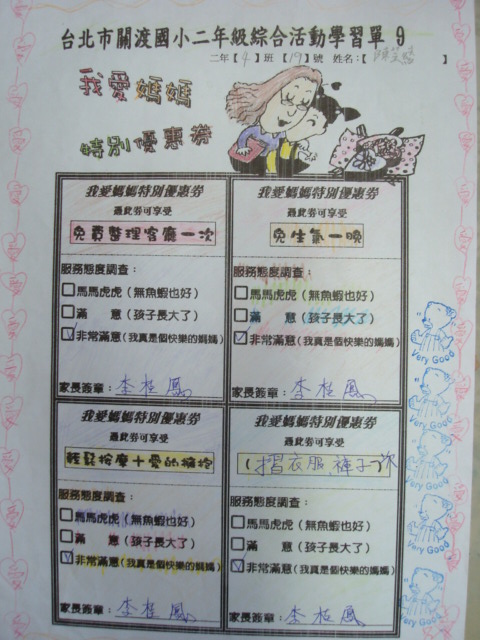 台北市關渡國小二年級綜合活動學習單 9
二年【4】班【19】號 姓名：【 】
我愛媽媽
特別優惠券
我愛媽媽特別優惠券
憑此券可享受
免費整理客廳一次
服務態度調查：
馬馬虎虎（無魚蝦也好）
滿 意（孩子長大了）
非常滿意（我真是個快樂的媽媽）
家長簽章：李桂鳳
我愛媽媽特別優惠券
憑此券可享受
免生氣一晚
服務態度調查：
馬馬虎虎（無魚蝦也好）
滿 意（孩子長大了）
非常滿意（我真是個快樂的媽媽）
家長簽章：李桂鳳
我愛媽媽特別優惠券
憑此券可享受
輕鬆按摩＋愛的擁抱
服務態度調查：
馬馬虎虎（無魚蝦也好）
滿 意（孩子長大了）
非常滿意（我真是個快樂的媽媽）
家長簽章：李桂鳳
我愛媽媽特別優惠券
憑此券可享受
摺衣服、褲子一次
服務態度調查：
馬馬虎虎（無魚蝦也好）
滿 意（孩子長大了）
非常滿意（我真是個快樂的媽媽）
家長簽章：李桂鳳
Very Good
Very Good
Very Good
Very Good
Very Good